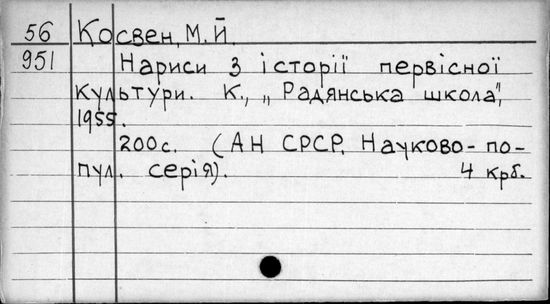 56 Косвен, М.Й.
951 Нариси з історії первісної
культури. К., „Радянська школа",
1955.
200с. (АН СРСР. Науково-по-
пул. серія). 4 крб.